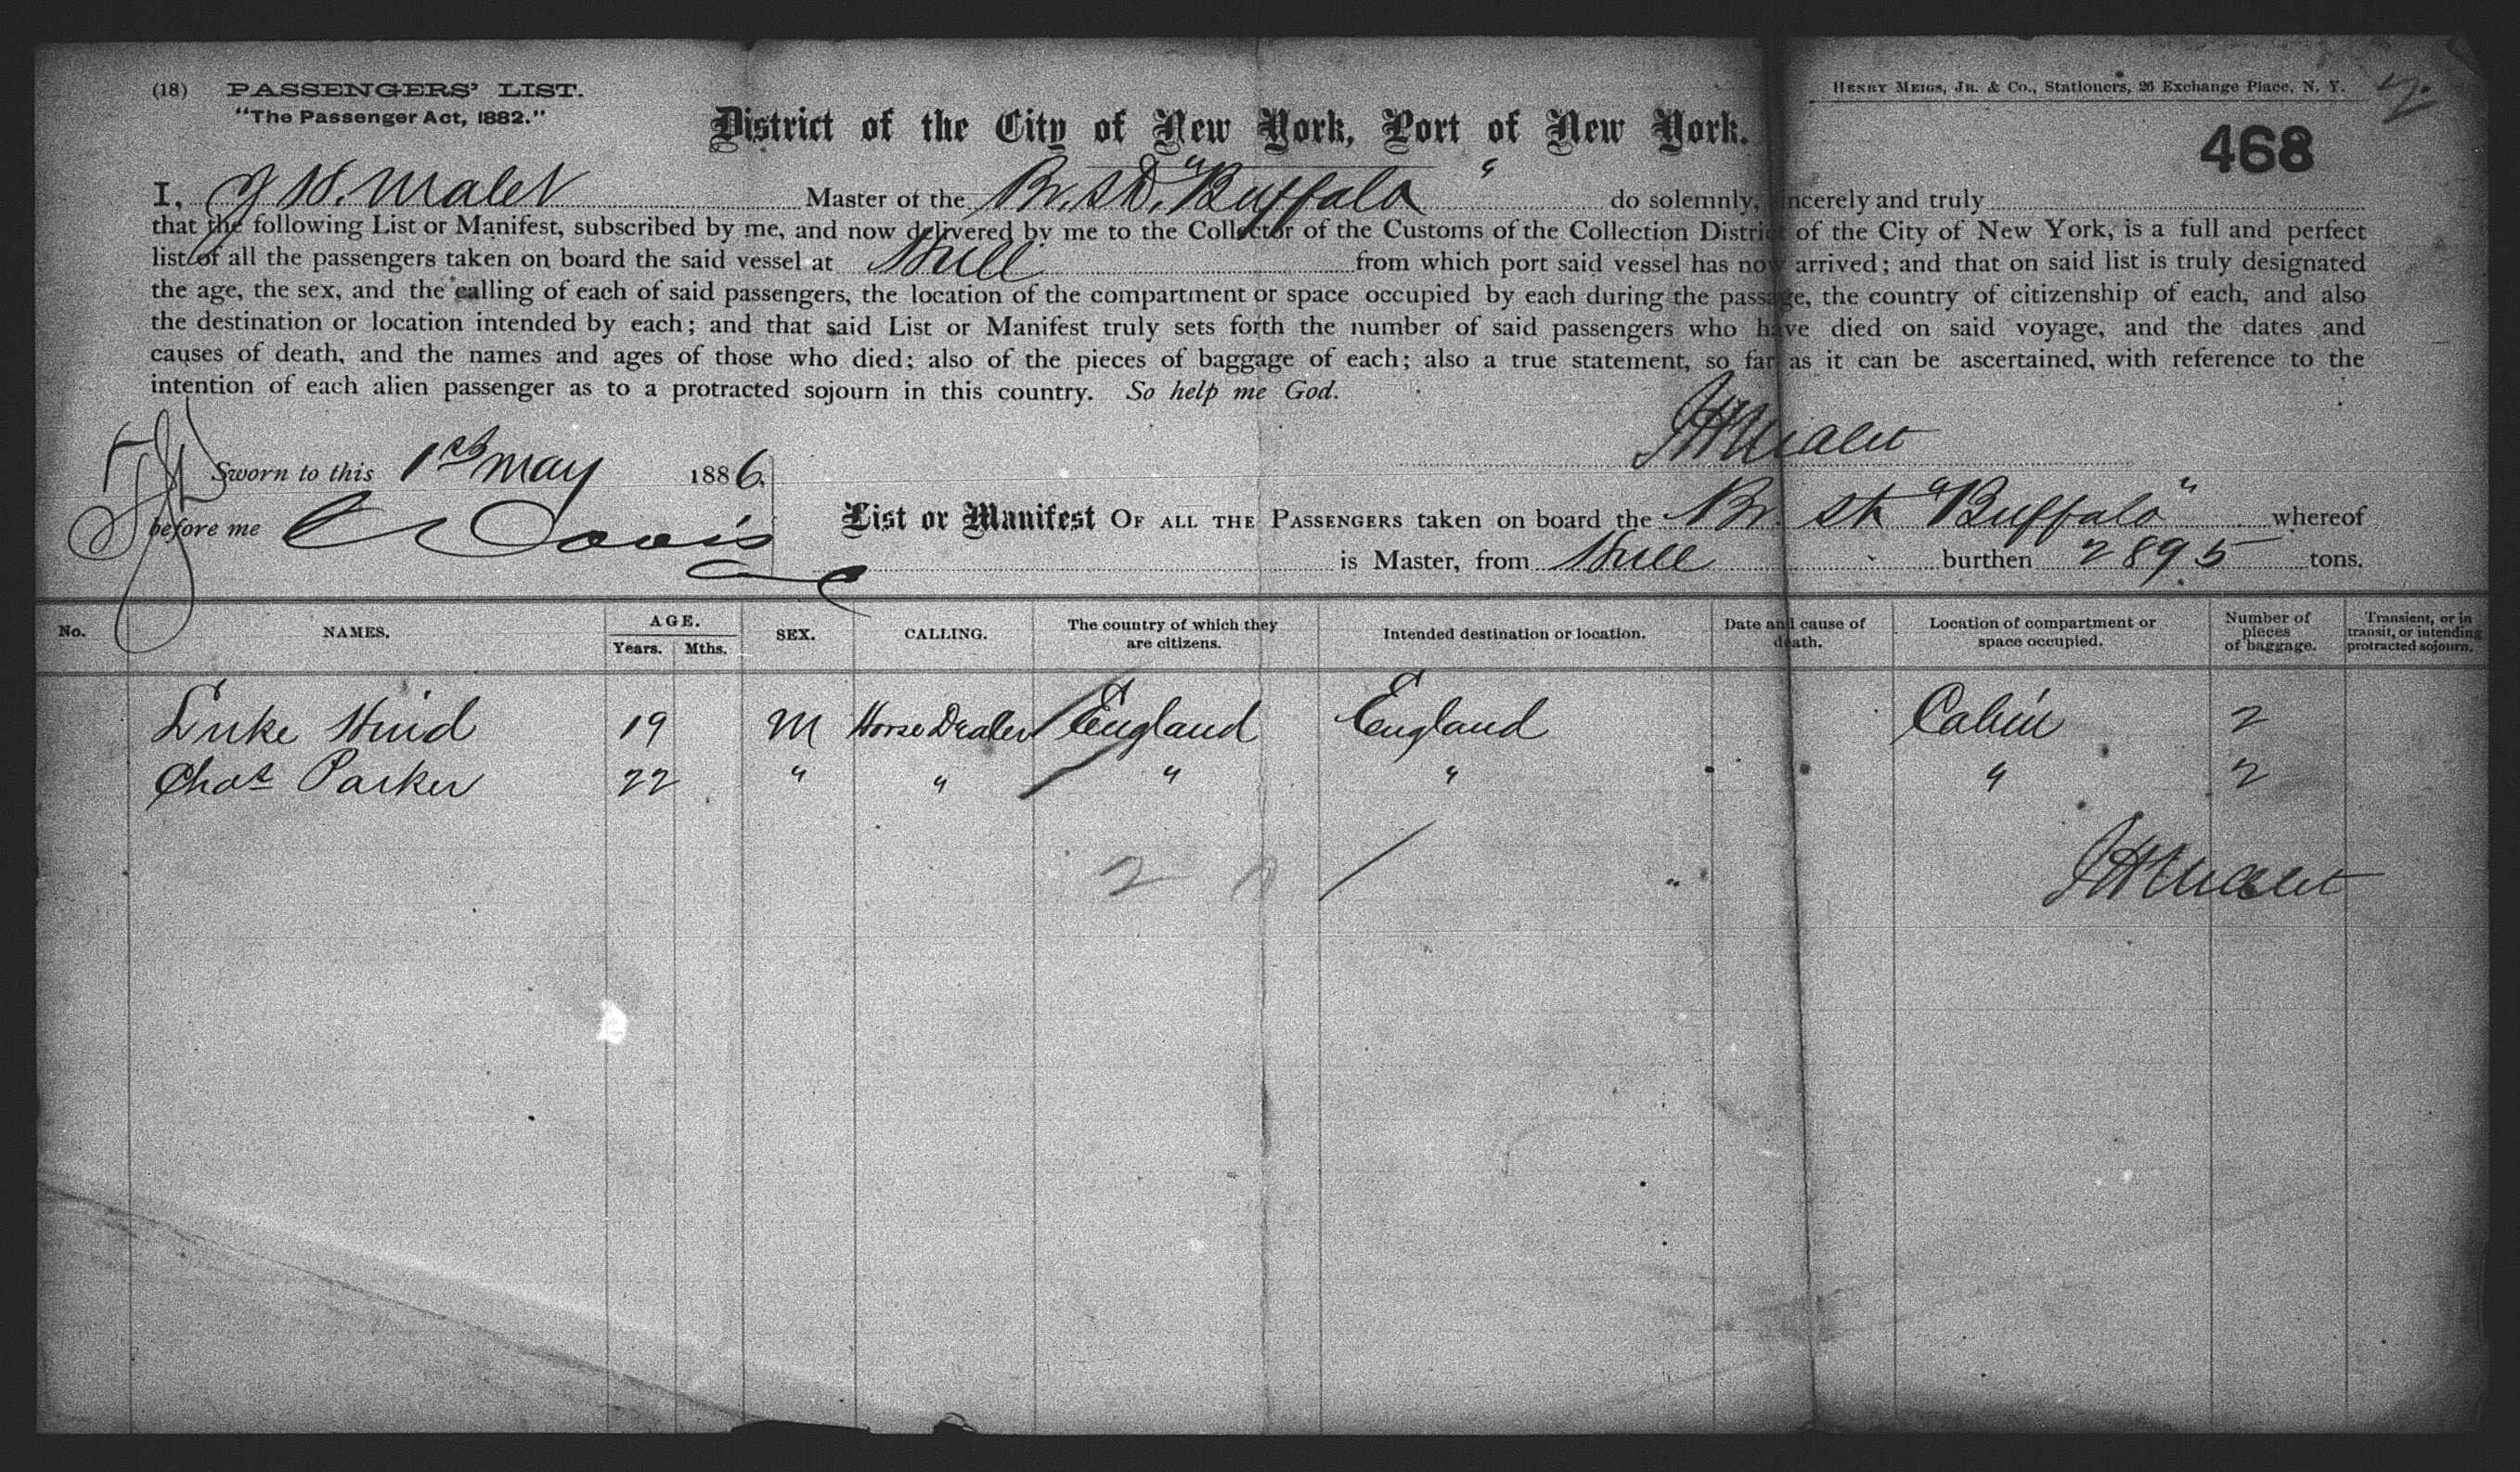 (18) PASSENGERS' LIST.
"The Passenger Act, 1882."
HENRY MEIGS, JR. & CO., Stationers, 26 Exchange Place, N. Y.
2
District of the City of New York, Port of New York.
468
I, J H. Malet Master of the Br. SS. "Buffalo" do solemnly, sincerely and truly
that the following List or Manifest, subscribed by me, and now delivered by me to the Collector of the Customs of the Collection District of the City of New York, is a full and perfect
list of all the passengers taken on board the said vessel at Hull from which port said vessel has now arrived; and that on said list is truly designated
the age, the sex, and the calling of each of said passengers, the location of the compartment or space occupied by each during the passage, the country of citizenship of each, and also
the destination or location intended by each; and that said List or Manifest truly sets forth the number of said passengers who have died on said voyage, and the dates and
causes of death, and the names and ages of those who died; also of the pieces of baggage of each; also a true statement, so far as it can be ascertained, with reference to the
intention of each alien passenger as to a protracted sojourn in this country. So help me God.
JH Malet
Sworn to this 1st May 1886,
before me Davis
List or Manifest OF ALL THE PASSENGERS taken on board the Br. St "Buffalo" whereof
is Master, from Hull burthen 2895 tons.
No. NAMES. AGE. Years. Mths. SEX. CALLING. The country of which they are citizens. Intended destination or location. Date and cause of death. Location of compartment or space occupied. Number of pieces of baggage. Transient, or in transit, or intending protracted sojourn.
Luke Hind 19 M Horse Dealer England England Cabin 2
Chas Parker 22 " " " " " 2
2
JH Malet